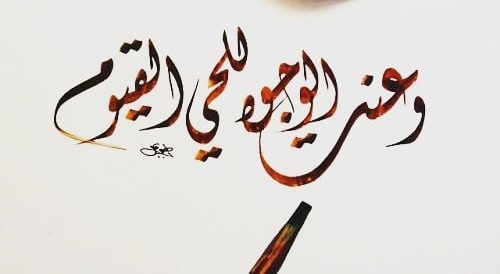 وعنت الوجوه للحي القيوم